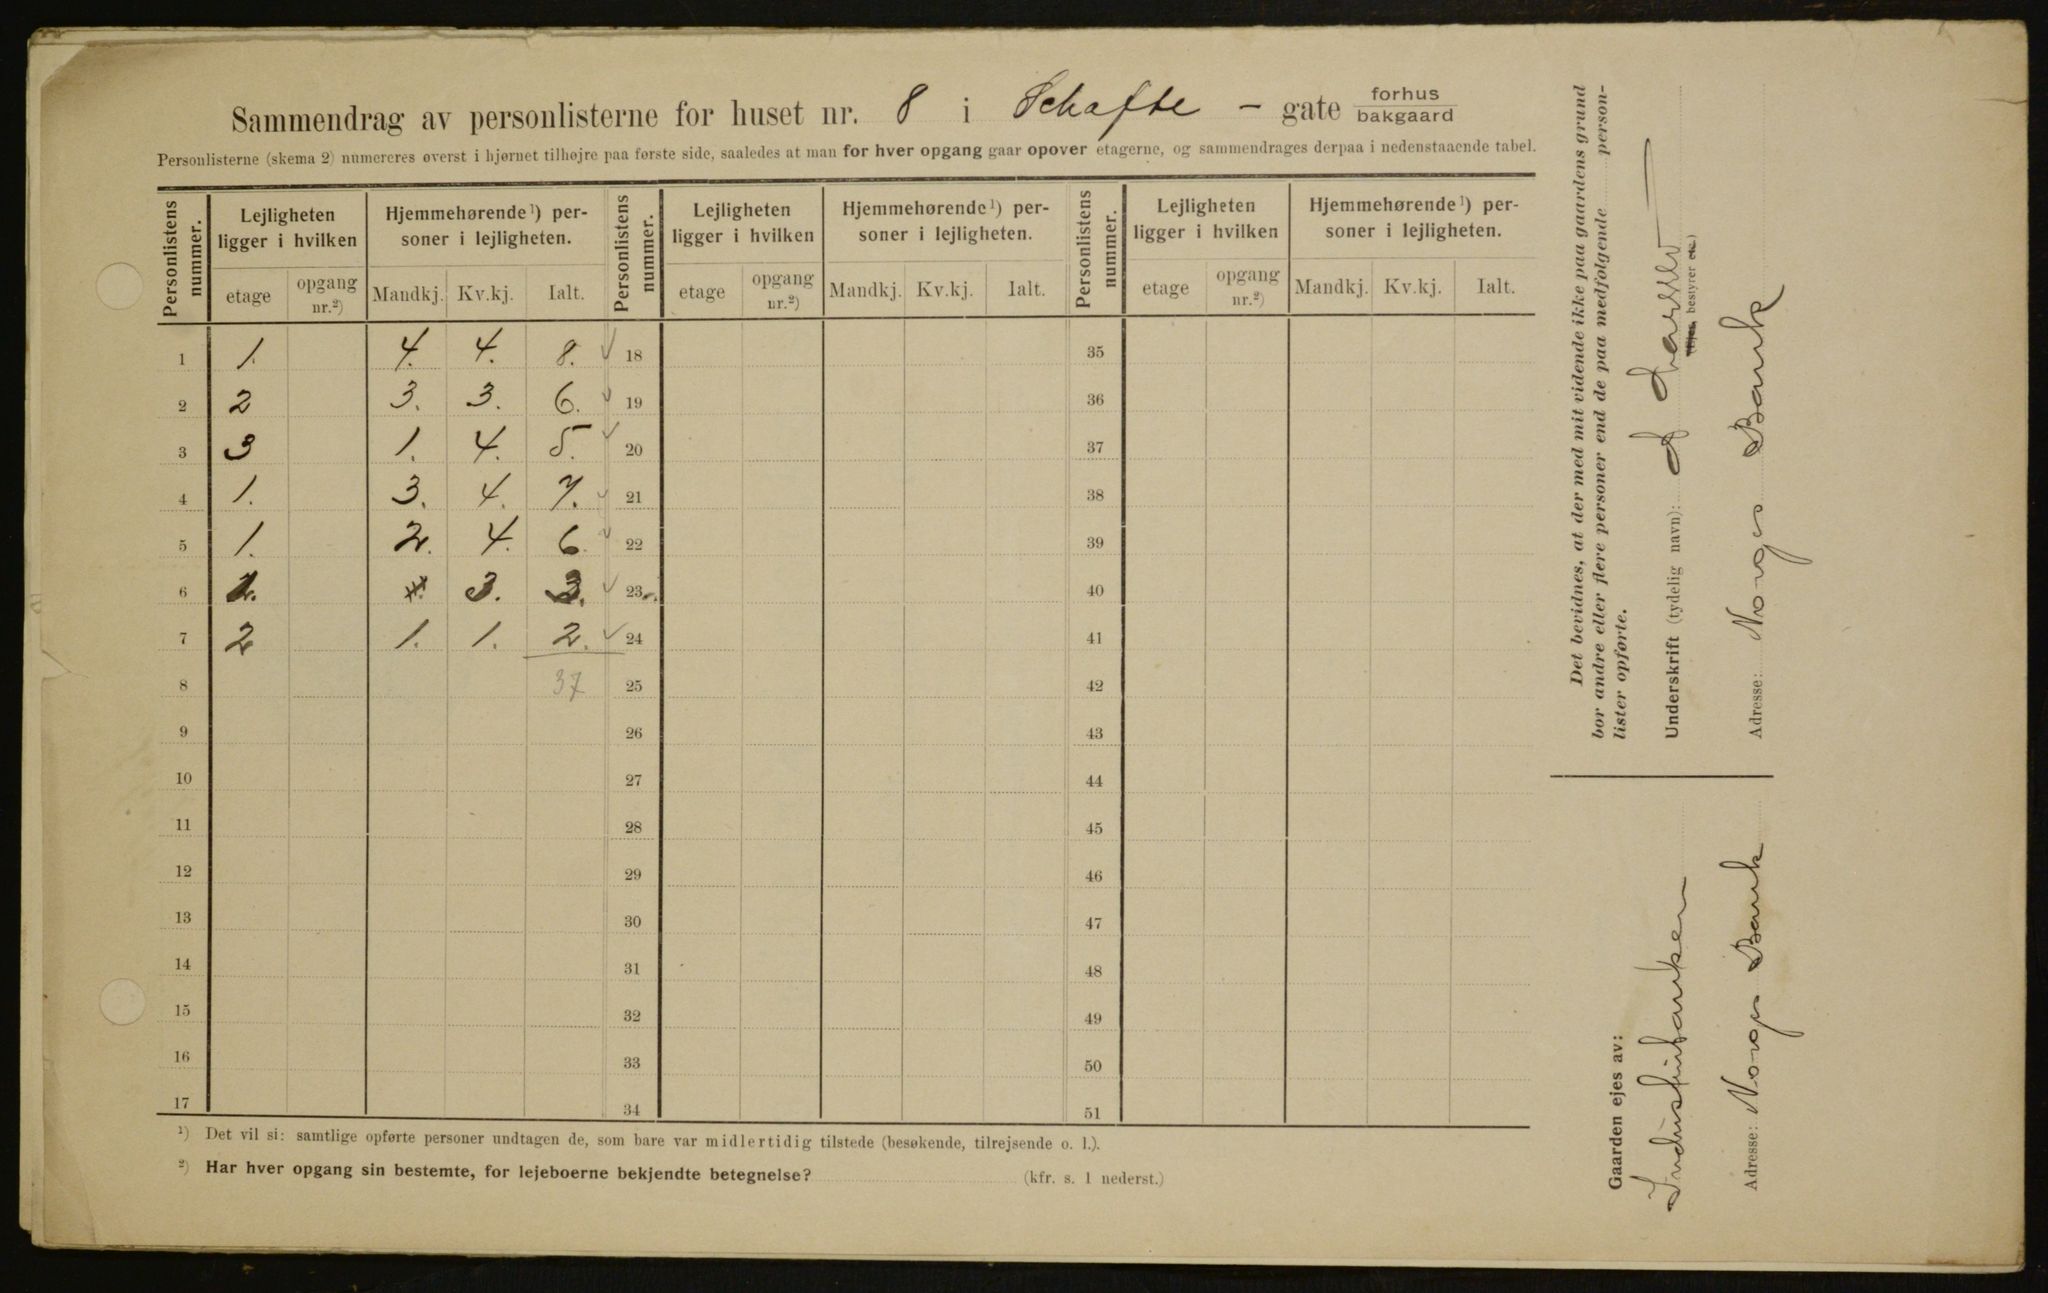 Sammendrag av personlisterne for huset nr. 8 i Schafte - gate forhus bakgaard
Personlisterne (skema 2) numereres øverst i hjørnet tilhøjre paa første side, saaledes at man for hver opgang gaar opover etagerne, og sammendrages derpaa i nedenstaaende tabel.
Personlistens nummer. Lejligheten ligger i hvilken Hjemmehørende¹) personer i lejligheten. Personlistens nummer. Lejligheten ligger i hvilken Hjemmehørende¹) personer i lejligheten. Personlistens nummer. Lejligheten ligger i hvilken Hjemmehørende¹) personer i lejligheten.
etage opgang nr.²) Mandkj. Kv.kj. Ialt. etage opgang nr.²) Mandkj. Kv.kj. Ialt. etage opgang nr.²) Mandkj. Kv.kj. Ialt.
1 1. 4. 4. 8. 18 35
2 2 3. 3. 6. 19 36
3 3 1. 4. 5. 20 37
4 1. 3. 4. 7. 21 38
5 1. 2. 4. 6 22 39
6 3. 3. 23 40
7 2 1. 1. 2. 24 41
8 37 25 42
9 26 43
10 27 44
11 28 45
12 29 46
13 30 47
14 31 48
15 32 49
16 33 50
17 34 51
¹) Det vil si: samtlige opførte personer undtagen de, som bare var midlertidig tilstede (besøkende, tilrejsende o. l.).
²) Har hver opgang sin bestemte, for lejeboerne bekjendte betegnelse? (kfr. s. 1 nederst.)
Det bevidnes, at der med mit vidende ikke paa gaardens grund
bor andre eller flere personer end de paa medfølgende personlister opførte.
Underskrift (tydelig navn):
(Ejer, bestyrer etc.)
Adresse: Norges Bank
Gaarden ejes av:
Industribanken
Adresse: Norges Bank